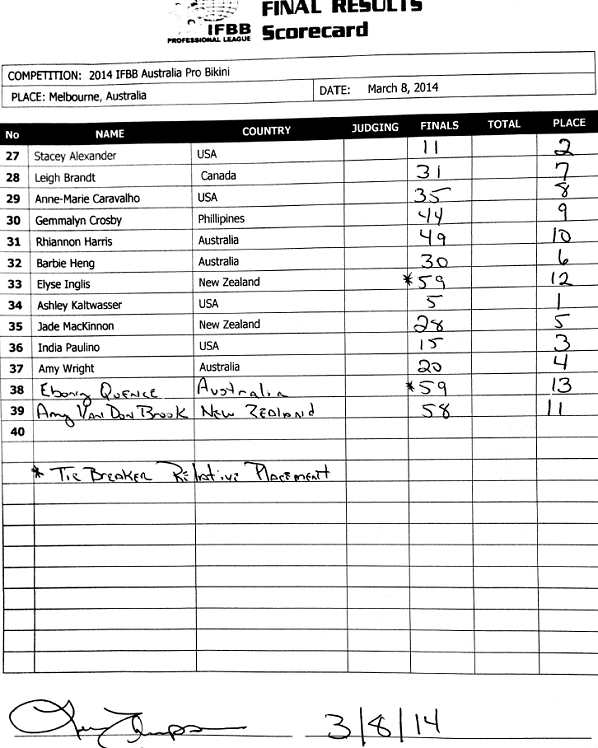 FINAL RESULTS
IFBB Scorecard
PROFESSIONAL LEAGUE
COMPETITION: 2014 IFBB Australia Pro Bikini
PLACE: Melbourne, Australia DATE: March 8, 2014
No NAME COUNTRY JUDGING FINALS TOTAL PLACE
27 Stacey Alexander USA 11 2
28 Leigh Brandt Canada 31 7
29 Anne-Marie Caravalho USA 35 8
30 Gemmalyn Crosby Phillipines 44 9
31 Rhiannon Harris Australia 49 10
32 Barbie Heng Australia 30 6
33 Elyse Inglis New Zealand *59 12
34 Ashley Kaltwasser USA 5 1
35 Jade MacKinnon New Zealand 28 5
36 India Paulino USA 15 3
37 Amy Wright Australia 20 4
38 Ebony Quence Australia *59 13
39 Amy Van Don Brook New Zealand 58 11
40
* Tie Breaker Relative Placement
3/8/14